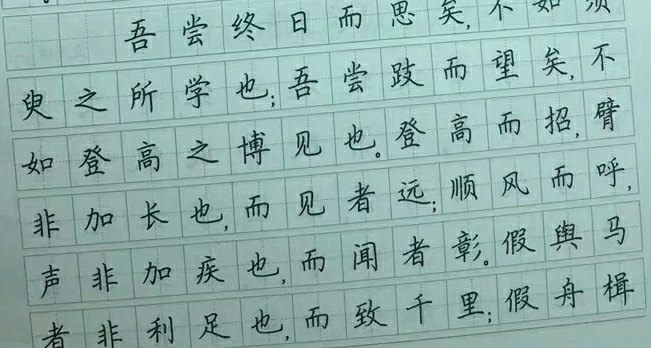 吾尝终日而思矣,不如须
臾之所学也;吾尝跂而望矣,不
如登高之博见也。登高而招,臂
非加长也,而见者远;顺风而呼,
声非加疾也,而闻者彰。假舆马
者非利足也,而致千里;假舟楫